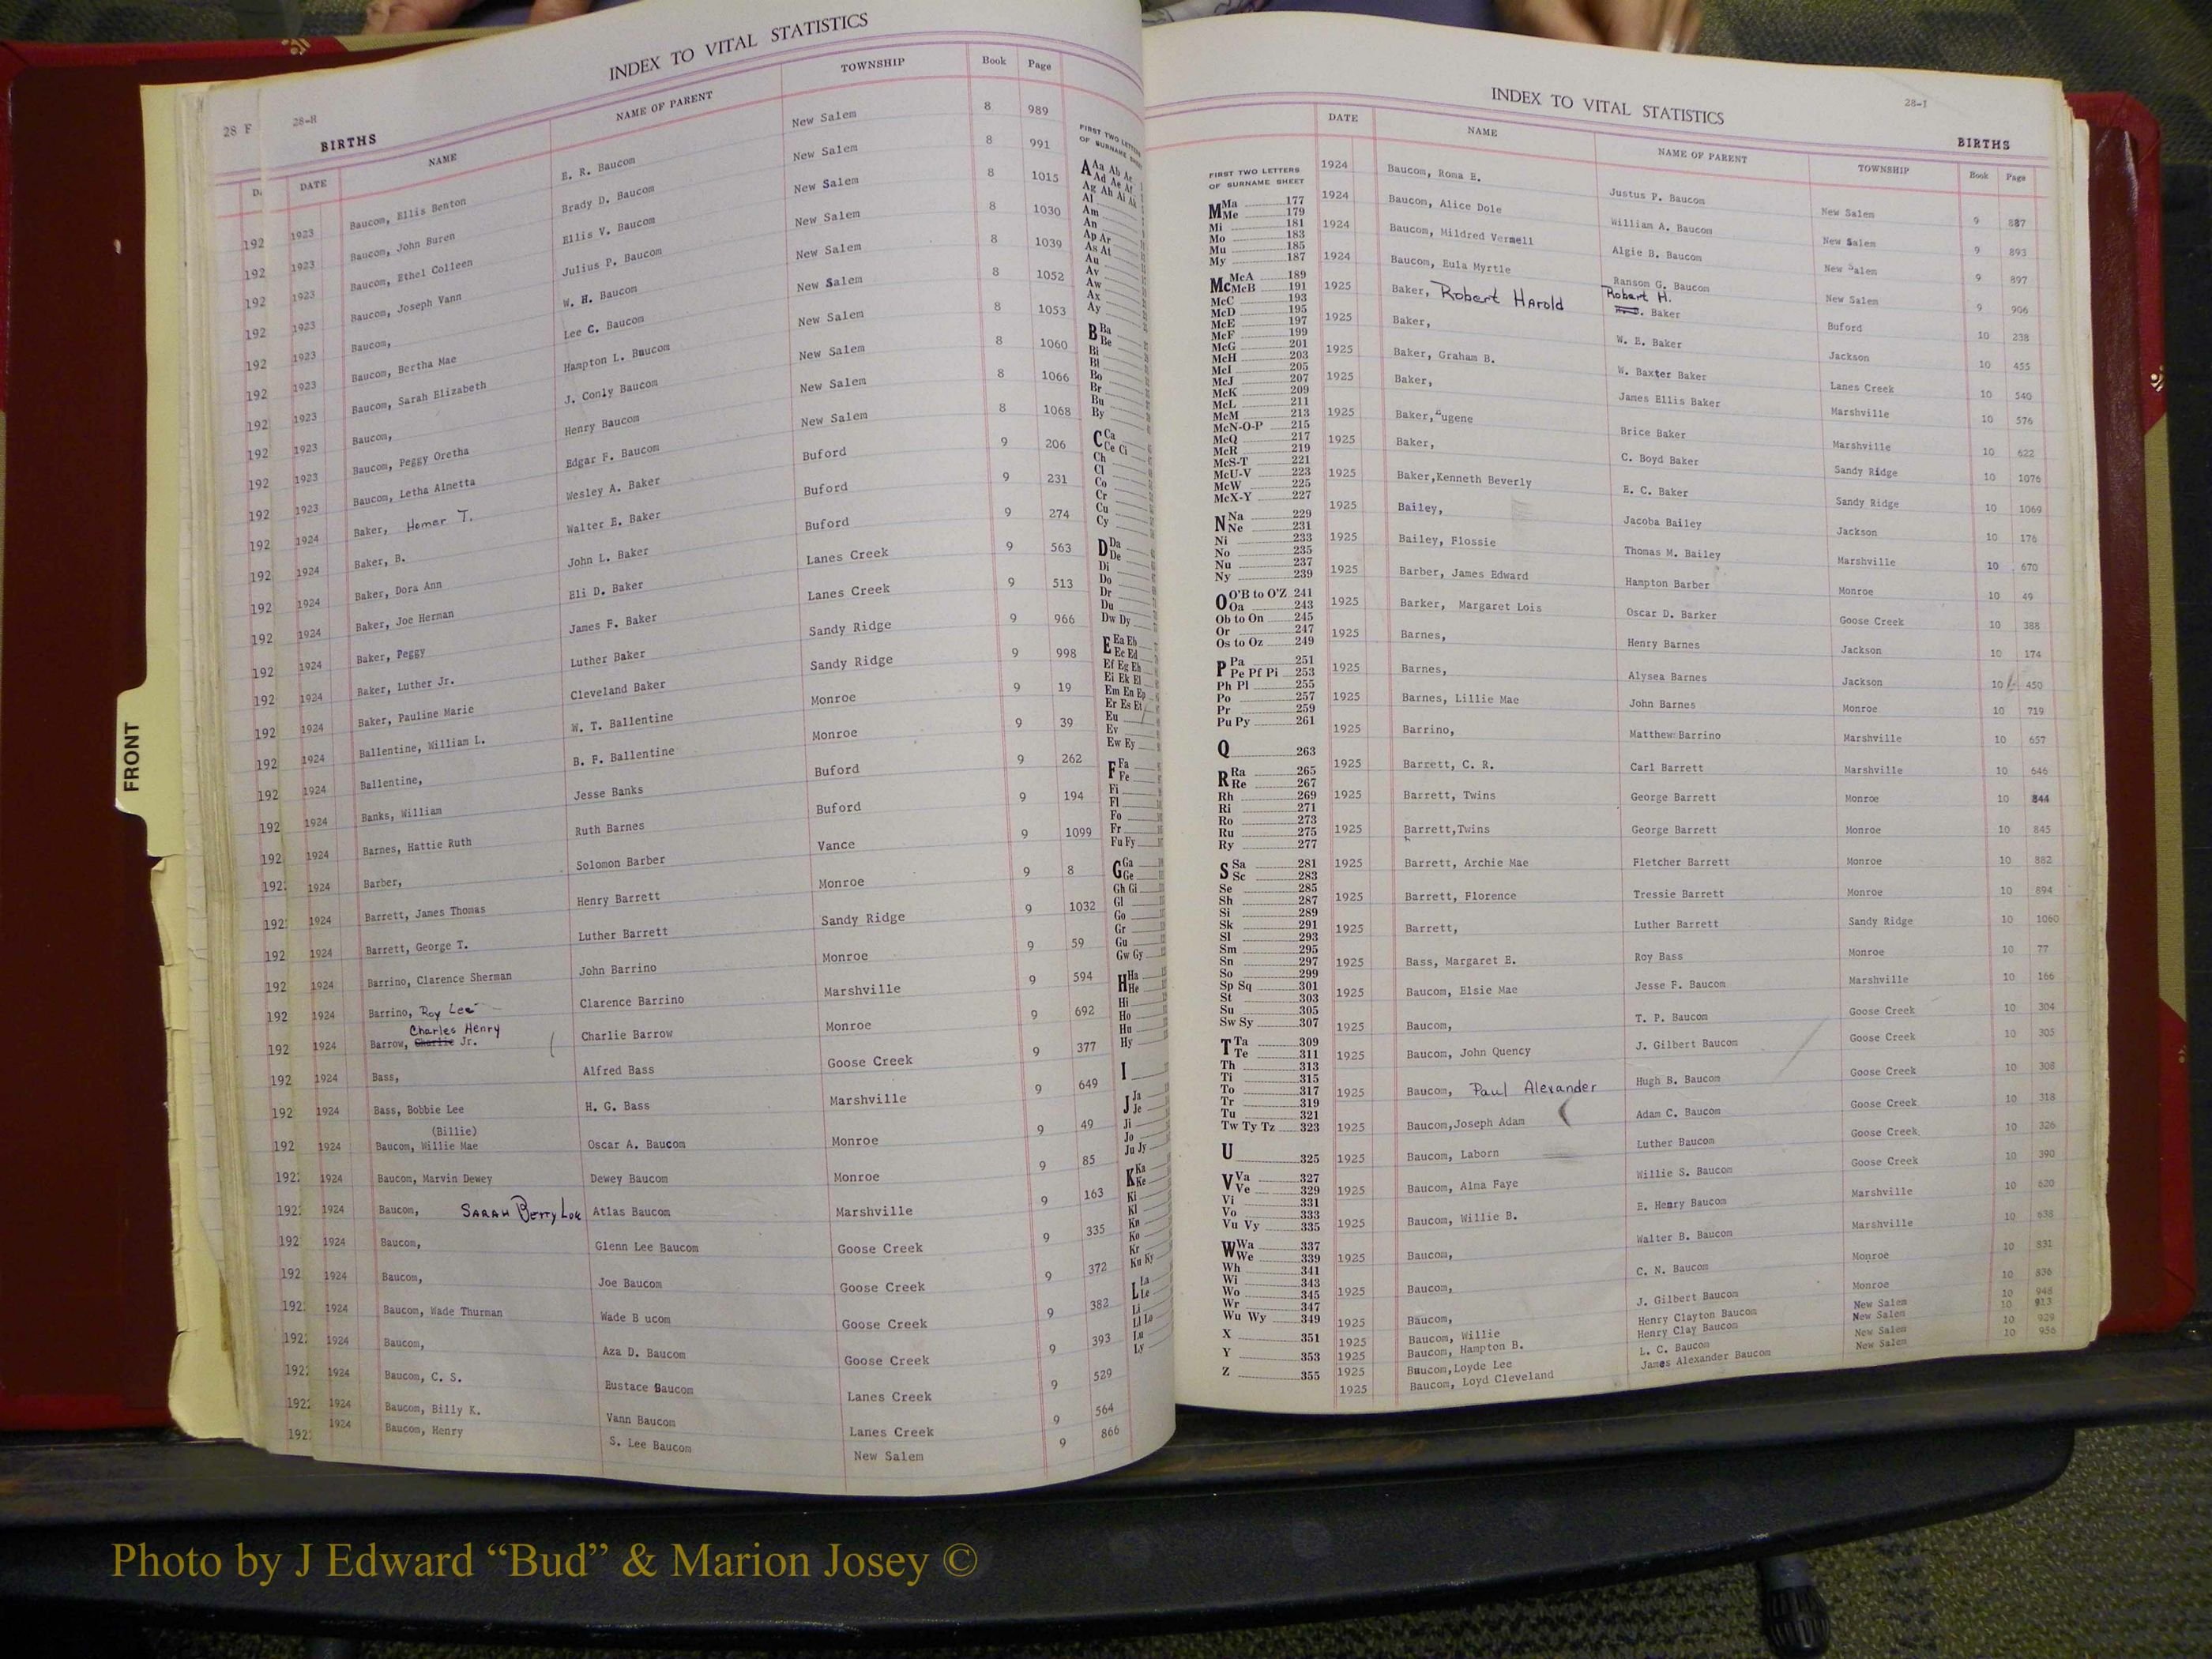 INDEX TO VITAL STATISTICS
28 F 28-H
BIRTHS
DATE NAME NAME OF PARENT TOWNSHIP Book Page
1923 Baucom, Ellis Benton E. R. Baucom New Salem 8 989
1923 Baucom, John Buren Brady D. Baucom New Salem 8 991
1923 Baucom, Ethel Colleen Ellis V. Baucom New Salem 8 1015
1923 Baucom, Joseph Vann Julius P. Baucom New Salem 8 1030
1923 Baucom, W. H. Baucom New Salem 8 1039
1923 Baucom, Bertha Mae Lee C. Baucom New Salem 8 1052
1923 Baucom, Sarah Elizabeth Hampton L. Baucom New Salem 8 1053
1923 Baucom, J. Conly Baucom New Salem 8 1060
1923 Baucom, Peggy Oretha Henry Baucom New Salem 8 1066
1923 Baucom, Letha Almetta Edgar F. Baucom New Salem 8 1068
1924 Baker, Homer T. Wesley A. Baker Buford 9 206
1924 Baker, B. Walter E. Baker Buford 9 231
1924 Baker, Dora Ann John L. Baker Buford 9 274
1924 Baker, Joe Herman Eli D. Baker Lanes Creek 9 563
1924 Baker, Peggy James F. Baker Lanes Creek 9 513
1924 Baker, Luther Jr. Luther Baker Sandy Ridge 9 966
1924 Baker, Pauline Marie Cleveland Baker Sandy Ridge 9 998
1924 Ballentine, William L. W. T. Ballentine Monroe 9 19
1924 Ballentine, B. F. Ballentine Monroe 9 39
1924 Banks, William Jesse Banks Buford 9 262
1924 Barnes, Hattie Ruth Ruth Barnes Buford 9 194
1924 Barber, Solomon Barber Vance 9 1099
1924 Barrett, James Thomas Henry Barrett Monroe 9 8
1924 Barrett, George T. Luther Barrett Sandy Ridge 9 1032
1924 Barrino, Clarence Sherman John Barrino Monroe 9 59
1924 Barrino, Roy Lee Clarence Barrino Marshville 9 594
Charles Henry
1924 Barrow, Charlie Jr. Charlie Barrow Monroe 9 692
1924 Bass, Alfred Bass Goose Creek 9 377
1924 Bass, Bobbie Lee H. G. Bass Marshville 9 649
(Billie)
1924 Baucom, Willie Mae Oscar A. Baucom Monroe 9 49
1924 Baucom, Marvin Dewey Dewey Baucom Monroe 9 85
1924 Baucom, SARAH BETTY LOU Atlas Baucom Marshville 9 163
1924 Baucom, Glenn Lee Baucom Goose Creek 9 335
1924 Baucom, Joe Baucom Goose Creek 9 372
1924 Baucom, Wade Thurman Wade B ucom Goose Creek 9 382
1924 Baucom, Aza D. Baucom Goose Creek 9 393
1924 Baucom, C. S. Eustace Baucom Lanes Creek 9 529
1924 Baucom, Billy K. Vann Baucom Lanes Creek 9 564
1924 Baucom, Henry S. Lee Baucom New Salem 9 866
FRONT
INDEX TO VITAL STATISTICS
28-I
BIRTHS
FIRST TWO LETTERS
OF SURNAME SHEET
M Ma 177
Me 179
Mi 181
Mo 183
Mu 185
My 187
Mc McA 189
McB 191
McC 193
McD 195
McE 197
McF 199
McG 201
McH 203
McI 205
McJ 207
McK 209
McL 211
McM 213
McN-O-P 215
McQ 217
McR 219
McS-T 221
McU-V 223
McW 225
McX-Y 227
N Na 229
Ne 231
Ni 233
No 235
Nu 237
Ny 239
O O'B to O'Z 241
Oa 243
Ob to On 245
Or 247
Os to Oz 249
P Pa 251
Pe Pf Pi 253
Ph Pl 255
Po 257
Pr 259
Pu Py 261
Q 263
R Ra 265
Re 267
Rh 269
Ri 271
Ro 273
Ru 275
Ry 277
S Sa 281
Sc 283
Se 285
Sh 287
Si 289
Sk 291
Sl 293
Sm 295
Sn 297
So 299
Sp Sq 301
St 303
Su 305
Sw Sy 307
T Ta 309
Te 311
Th 313
Ti 315
To 317
Tr 319
Tu 321
Tw Ty Tz 323
U 325
V Va 327
Ve 329
Vi 331
Vo 333
Vu Vy 335
W Wa 337
We 339
Wh 341
Wi 343
Wo 345
Wr 347
Wu Wy 349
X 351
Y 353
Z 355
DATE NAME NAME OF PARENT TOWNSHIP Book Page
1924 Baucom, Roma E. Justus P. Baucom New Salem 9 887
1924 Baucom, Alice Dole William A. Baucom New Salem 9 893
1924 Baucom, Mildred Vermell Algie B. Baucom New Salem 9 897
1924 Baucom, Eula Myrtle Ransom G. Baucom New Salem 9 906
Robert H.
1925 Baker, Robert Harold Baker Buford 10 238
1925 Baker, W. E. Baker Jackson 10 455
1925 Baker, Graham B. W. Baxter Baker Lanes Creek 10 540
1925 Baker, James Ellis Baker Marshville 10 576
1925 Baker, Eugene Brice Baker Marshville 10 622
1925 Baker, C. Boyd Baker Sandy Ridge 10 1076
1925 Baker,Kenneth Beverly E. C. Baker Sandy Ridge 10 1069
1925 Bailey, Jacoba Bailey Jackson 10 176
1925 Bailey, Flossie Thomas M. Bailey Marshville 10 670
1925 Barber, James Edward Hampton Barber Monroe 10 49
1925 Barker, Margaret Lois Oscar D. Barker Goose Creek 10 388
1925 Barnes, Henry Barnes Jackson 10 174
1925 Barnes, Alysea Barnes Jackson 10 450
1925 Barnes, Lillie Mae John Barnes Monroe 10 719
1925 Barrino, Matthew Barrino Marshville 10 657
1925 Barrett, C. R. Carl Barrett Marshville 10 646
1925 Barrett, Twins George Barrett Monroe 10 844
1925 Barrett,Twins George Barrett Monroe 10 845
1925 Barrett, Archie Mae Fletcher Barrett Monroe 10 882
1925 Barrett, Florence Tressie Barrett Monroe 10 894
1925 Barrett, Luther Barrett Sandy Ridge 10 1060
1925 Bass, Margaret E. Roy Bass Monroe 10 77
1925 Baucom, Elsie Mae Jesse F. Baucom Marshville 10 166
1925 Baucom, T. P. Baucom Goose Creek 10 304
1925 Baucom, John Quency J. Gilbert Baucom Goose Creek 10 305
1925 Baucom, Paul Alexander Hugh B. Baucom Goose Creek 10 308
1925 Baucom,Joseph Adam Adam C. Baucom Goose Creek 10 318
1925 Baucom, Laborn Luther Baucom Goose Creek 10 326
1925 Baucom, Alma Faye Willie S. Baucom Goose Creek 10 390
1925 Baucom, Willie B. E. Henry Baucom Marshville 10 620
1925 Baucom, Walter B. Baucom Marshville 10 638
1925 Baucom, C. N. Baucom Monroe 10 831
1925 Baucom, J. Gilbert Baucom Monroe 10 836
1925 Baucom, Willie Henry Clayton Baucom New Salem 10 948
1925 Baucom, Hampton B. Henry Clay Baucom New Salem 10 913
1925 Baucom,Loyde Lee L. C. Baucom New Salem 10 929
1925 Baucom, Loyd Cleveland James Alexander Baucom New Salem 10 956
Photo by J Edward “Bud” & Marion Josey ©